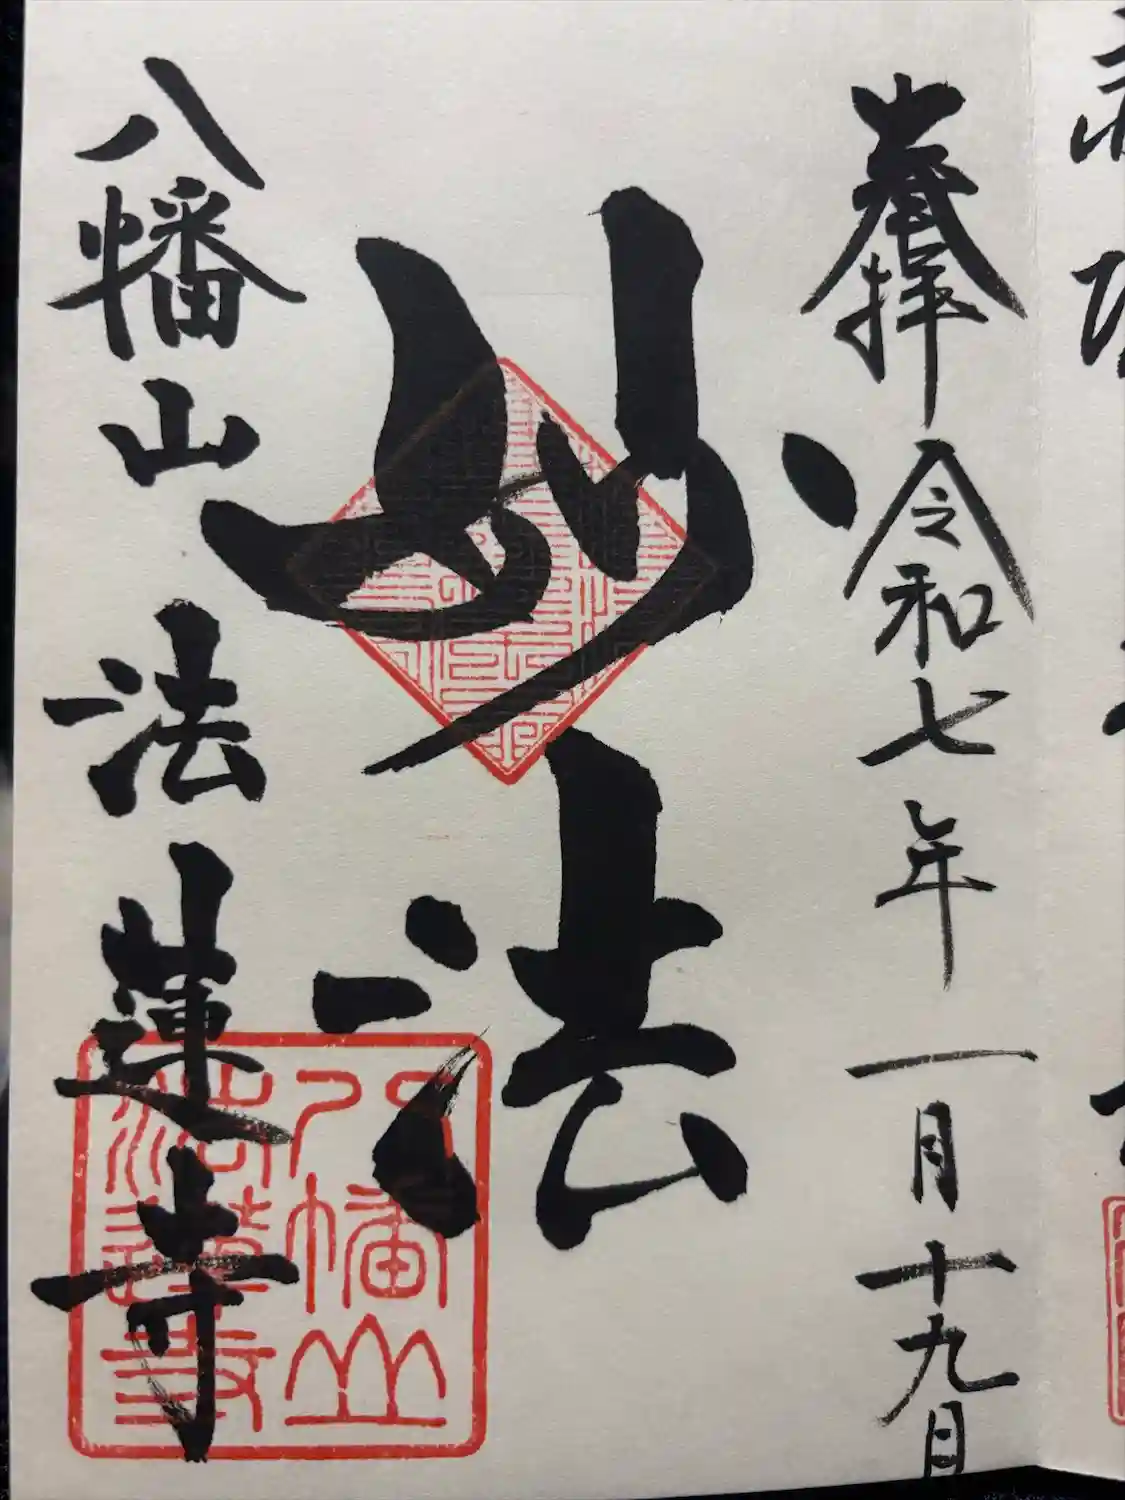 奉拝 令和七年一月十九日
妙法
八幡山 法蓮寺
八幡山
法蓮寺